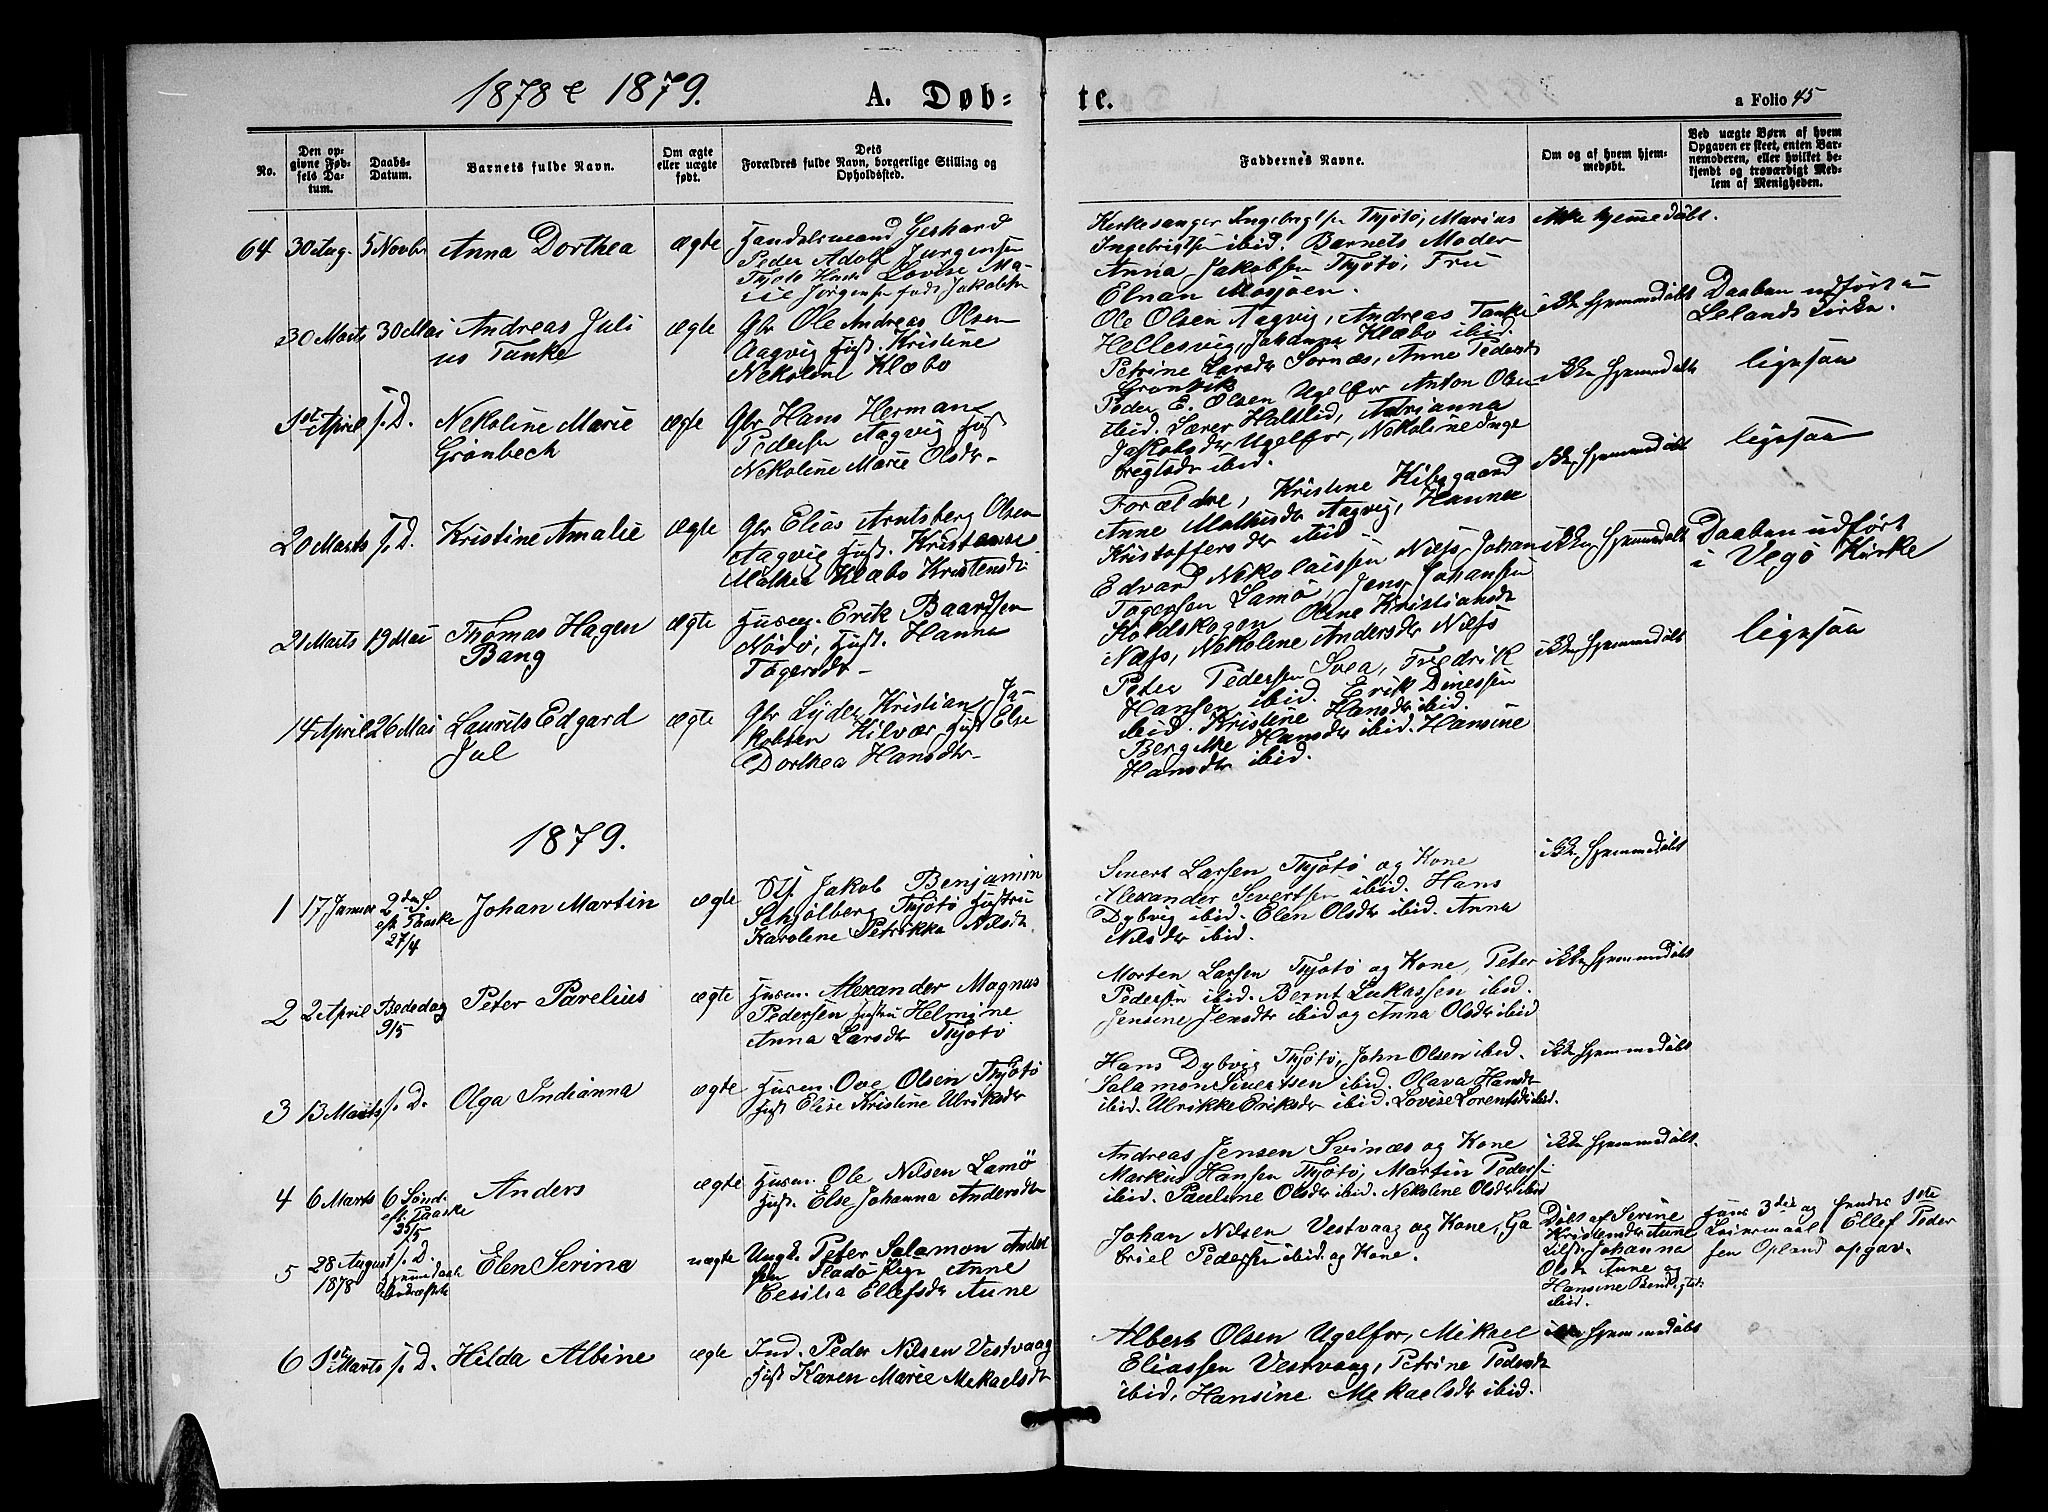 1878 & 1879. A. Døb- te. a Folio 45
No.
Den op-
givne Fød-
sels Da-
tum.
Daabs-
Datum.
Barnets fulde Navn.
Om ægte
eller uægte
født.
Dets
Forældres fulde Navn, borgerlige Stilling og
Opholdssted.
Faddernes Navne.
Om og af hvem hjem-
medøbt.
Ved uægte Børn af hvem
Opgaven er skeet, enten Bar-
nemoderen, eller hvilket be-
kjendt og troværdigt Med-
lem af Menigheden.
64 30 Aug. 5 Novbr Anna Dorthea ægte
Handelsmand Gerhard
Peder Adolf Jürgensen
Thjøtø Lovise Ma-
rie Jørgensen født Jakobsen
Kirkesanger Ingebrigtsen Thjøtø, Marius
Ingebrigtsen ibid. Barnets Moder
Anna Jakobsen Thjøtø, Fru
Elnan Mosjøen.
ikke hjemmedøbt.
30 Marts 30 Mai Andreas Juli
us Tanke
ægte
Gbr Ole Andreas Olsen
Aagvig Hust. Kristine
Nekoline Klæbo
Ole Olsen Aagvig, Andreas Tanke
Hellesvig, Johanna Klæbo ibid.
Petrine Larsdr Sørnæs, Anne Pedersdr
Grønvik
ikke hjemmedøbt
Daaben udført i
Lelands Kirke.
1ste April s. D. Nekoline Marie
Grønbech
ægte
Gbr Hans Herman
Pedersen Aagvig Hust
Nekoline Marie Olsdr
Peder E. Olsen Ugelfor Anton Olsen
ibid. Lærer Haltlid, Adrianna
Jakobsdr Ugelfor, Nekoline Inge
bregtsdr ibid.
ikke hjemmedøbt
ligesaa
20 Marts s. D. Kristine Amalie ægte
Gbr Elias Arntsberg Olsen
Aagvig Hust. Kristense
Mathea Klæbo Kristensdr
Forældre, Kristine Kibsgaard
Anne Mathisdr Aagvig, Hanna
Kristoffersdr ibid
ikke hjemmedøbt
ligesaa
21 Marts 19 Mai Thomas Hagen
Bang
ægte
Husm. Erik Baardsen
Nødø, Hust. Hanna
Tøgersdr
Edvard Nekolaissen Næss, Johan
Tøgersen Lamø, Jens Johansen
Koldskogen Oline Kristiansdr
Næss, Nekoline Andersdr Næss
ikke hjemmedøbt
Daaben udført
i Vegø Kirke
14 April 26 Mai Laurits Edgard
Jul
ægte
Gbr Lyder Kristian Ja-
kobsen Hilvær, Hust Else
Dorthea Hansdr
Peter Pedersen Svea, Fredrik
Hansen ibid. Erik Dinessen
ibid. Kristine Hansdr ibid.
Bergitte Hansdr ibid. Hansine
Hansdr ibid.
ikke hjemmedøbt
ligesaa
1879.
1 17 Januar 2den S.
eft. Paaske
27/4
Johan Martin ægte
Jakob Benjamin
Schjølberg Thjøtø Hustru
Karoline Petrikka Nilsdr
Sivert Larsen Thjøtø og Kone
Alexander Sivertsen ibid. Hans
Dybvig ibid. Elen Olsdr ibid. Anna
Nilsdr ibid.
ikke hjemmedøbt
2 2 April Bededag
9/5
Peter Parelius ægte
Husm. Alexander Magnus
Pedersen Hustru Helmine
Anna Larsdr Thjøtø
Morten Larsen Thjøtø og Kone, Peter
Pedersen ibid. Bernt Lukassen ibid.
Jensine Jensdr ibid og Anna Olsdr ibid
ikke hjemmedøbt
3 13 Marts s. D. Olga Indianna ægte
Husm. Ove Olsen Thjøtø
Hust Elise Kristine Ulriksdr
Hans Dybvig Thjøtø, John Olsen ibid.
Salamon Sivertsen ibid. Olava Hansdr
ibid. Ulrikke Eriksdr ibid. Lovise Lorentsdr ibid.
ikke hjemmedøbt
4 6 Marts 6 Sønd.
eft. Paaske
25/5
Anders ægte
Husm. Ole Nilsen Lamø
Hust. Else Johanna Andersdr
Andreas Jensen Svinæs og Kone
Markus Hansen Thjøtø, Martin Peders-
ibid. Pauline Olsdr ibid. Nekoline Olsdr ibid
ikke hjemmedøbt.
5 28 August
1878
s. D.
Elen Serina uægte
Ungk. Peter Salamon Ander
sen Fladø Pige Anne
Cesilia Ellefsdr Aune
Johan Nilsen Vestvaag og Kone, Ga
briel Pedersen ibid og Kone.
Døbt af Serine
Kristensdr Aune
Johanna
Olsdr Aune og
Hansine Bendigtsdr
ibid.
hans 3die og hendes 1ste
Leiermaal. Ellef Peder
sen Opland opgav.
6 1ste
Marts
s. D. Hilda Albine ægte
Ind. Peder Nilsen Vestvaag
Hust Karen Marie Mekaelsdr
Albert Olsen Ugelfor, Mikael
Eliassen Vestvaag, Petrine Pedersdr
ibid, Hansine Mekaelsdr ibid.
ikke hjemmedøbt